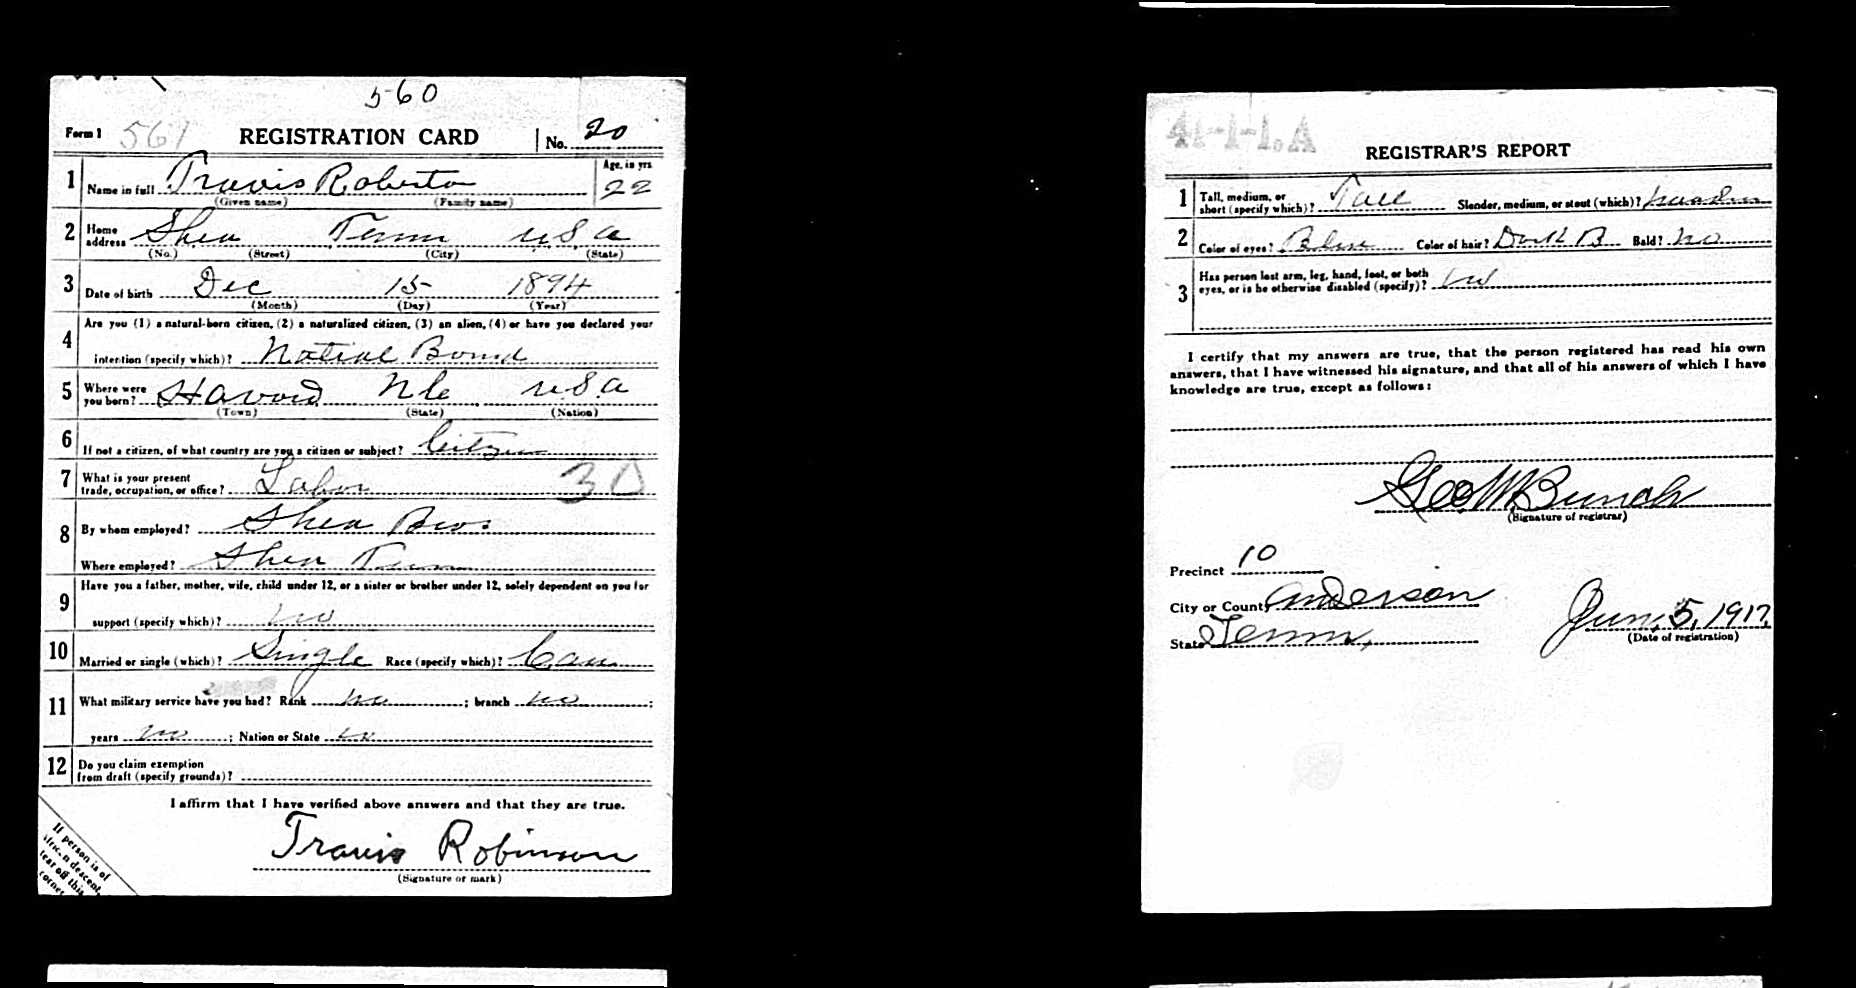 560
Form 1 561 REGISTRATION CARD No. 20
1 Name in full Travis Roberts Age, in yrs. 22
(Given name) (Family name)
2 Home address Shea Tenn U.S.A
(No.) (Street) (City) (State)
3 Date of birth Dec 15 1894
(Month) (Day) (Year)
4 Are you (1) a natural-born citizen, (2) a naturalized citizen, (3) an alien, (4) or have you declared your
intention (specify which)?
5 Where were you born? U.S.A
(Town) (State) (Nation)
6 If not a citizen, of what country are you a citizen or subject?
7 What is your present
trade, occupation, or office? Labor 30
8 By whom employed? Shea Bros
Where employed? Shea Tenn
9 Have you a father, mother, wife, child under 12, or a sister or brother under 12, solely dependent on you for
support (specify which)? no
10 Married or single (which)? Single Race (specify which)? Cau
11 What military service have you had? Rank no ; branch no ;
years no ; Nation or State no
12 Do you claim exemption
from draft (specify grounds)?
I affirm that I have verified above answers and that they are true.
Travis Robinson
(Signature or mark)
If person is of
African descent,
tear off this
corner
41-1-1.A
REGISTRAR'S REPORT
1 Tall, medium, or
short (specify which)? Tall Slender, medium, or stout (which)?
2 Color of eyes? Blue Color of hair? Dark B Bald? No
3 Has person lost arm, leg, hand, foot, or both
eyes, or is he otherwise disabled (specify)? no
I certify that my answers are true, that the person registered has read his own
answers, that I have witnessed his signature, and that all of his answers of which I have
knowledge are true, except as follows:
Geo. W. Bunch
(Signature of registrar)
Precinct 10
City or County Anderson
State Tenn, Jun, 5, 1917,
(Date of registration)